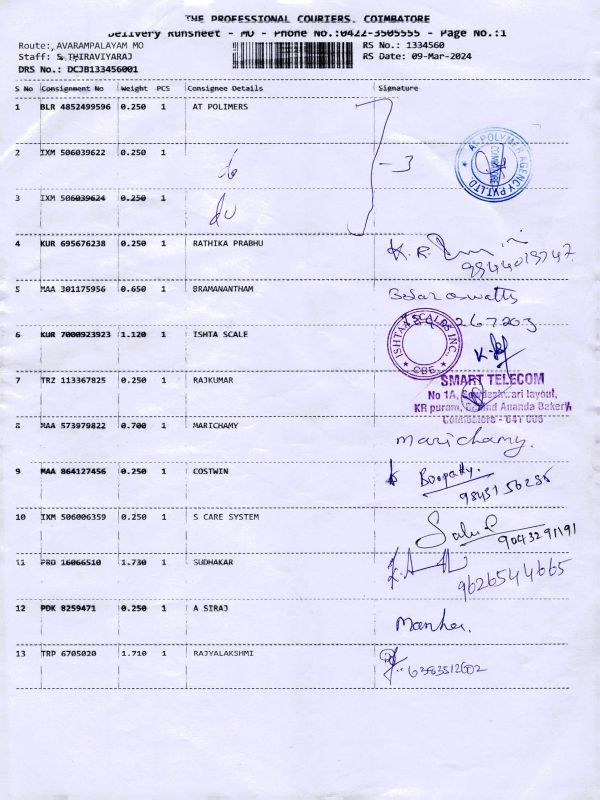 THE PROFESSIONAL COURIERS, COIMBATORE
Delivery Runsheet - MO - Phone No.:0422-3505555 - Page No.:1
Route: AVARAMPALAYAM MO RS No.: 1334560
Staff: S THIRAVIYARAJ RS Date: 09-Mar-2024
DRS No.: DCJB133456001
S No Consignment No Weight PCS Consignee Details Signature
1 BLR 4852499596 0.250 1 AT POLIMERS
2 IXM 506039622 0.250 1
- 3
AT POLYMER AGENCY PVT LTD.
3 IXM 506039624 0.250 1
4 KUR 695676238 0.250 1 RATHIKA PRABHU
K. R.
5 MAA 301175956 0.650 1 BRAMANANTHAM
6 KUR 7000923923 1.120 1 ISHTA SCALE
ISHTAA SCALES INC.
CBE
7 TRZ 113367825 0.250 1 RAJKUMAR
SMART TELECOM
No 1A, layout,
KR puram, Ananda Bakery
Coimbatore - 641 006
8 MAA 573979822 0.700 1 MARICHAMY
Marichamy.
9 MAA 864127456 0.250 1 COSTWIN
Boopathy.
10 IXM 506006359 0.250 1 S CARE SYSTEM
9043291191
11 PRO 16066510 1.730 1 SUDHAKAR
9626544665
12 PDK 8259471 0.250 1 A SIRAJ
13 TRP 6705020 1.710 1 RAJYALAKSHMI
6383512602